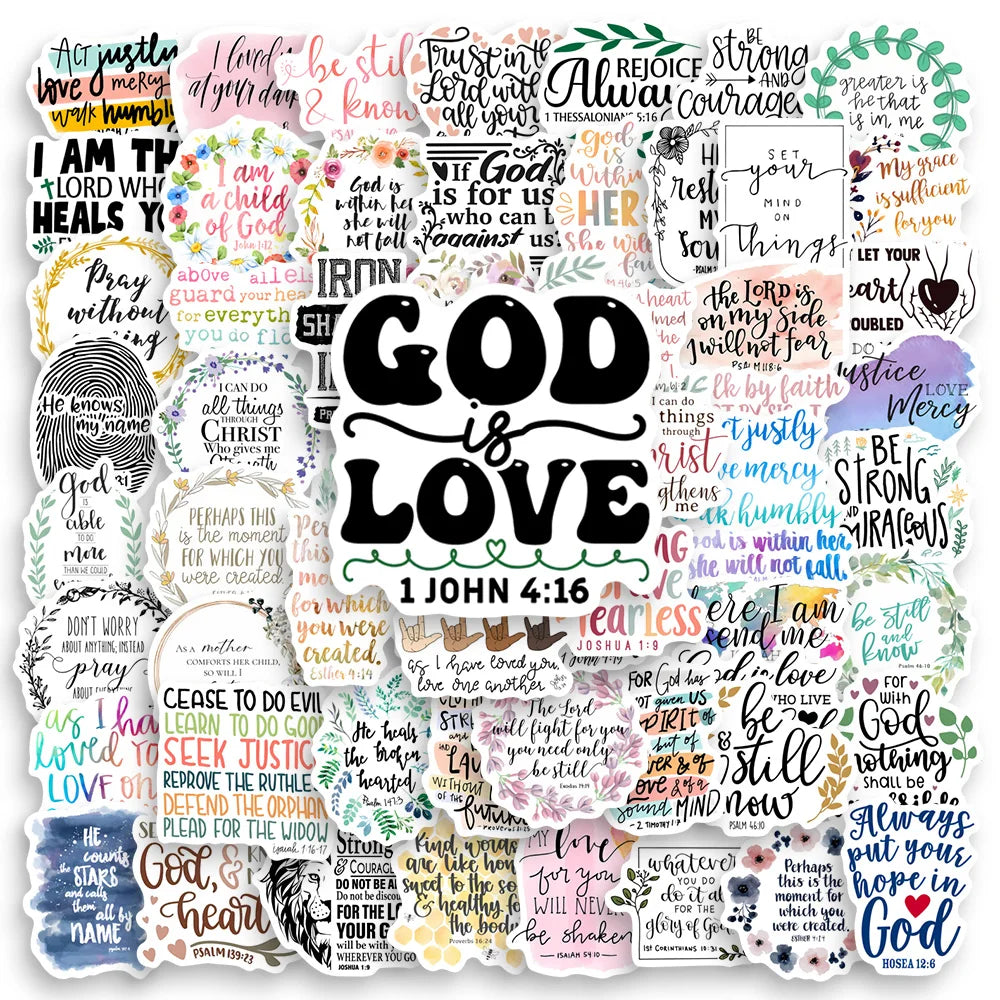 Act justly
love mercy
walk humbly
I loved
at your dar
be stil
& know
PSAL
Trust in th
Lord with
all your
REJOICE
Alwa
1 THESSALONIANS 5:16
BE
Strong
AND
Courage
greater is
he that
is in, me
I AM TH
LORD WHO
HEALS YO
I am
a child
of God
John 1:12
God is
within her
she will
not fall
If God
is for us
who can b
against us
God
is
within
HER
she will
fai
46:5
HE
rest
MY
Sou
PSALM 2
SET
your
MIND
ON
Things
My grace
is sufficient
for you
Pray
without
above all els
guard your hea
for everyth
you do flo
IRON
SHA
the LORD is
on my side
I will not fear
PSALM 118:6
LET YOUR
eart
OUBLED
He knows
my name
I CAN DO
all things
THROUGH
CHRIST
Who gives me
GOD
is
LOVE
1 JOHN 4:16
i can do
things
through
rist
gthens
me
lk by faith
t justly
ve mercy
lk humbly
Justice
LOVE
Mercy
God
IS
able
TO DO
more
THAN WE COULD
PERHAPS THIS
is the moment
FOR WHICH YOU
were created.
Per
this
mo
for which
you were
created.
Esther 4:14
God is within her,
she will not fall.
BE
STRONG
AND
COURAGEOUS
DON'T WORRY
ABOUT ANYTHING; INSTEAD
pray
ABOUT
AS A mother
COMFORTS HER CHILD,
SO WILL I
as I have loved you,
love one another.
fearless
JOSHUA 1:9
ere I am
end me
be still
and
know
Psalm 46:10
as I ha
loved yo
LOVE on
CEASE TO DO EVIL
LEARN TO DO GOO
SEEK JUSTIC
REPROVE THE RUTHLE
DEFEND THE ORPHAN
PLEAD FOR THE WIDOW
Isaiah 1:16-17
He heals
the broken
hearted
Psalm 147:3
STR
and
LAU
WITHOUT
OF THE
future
PROVERBS 31:25
The Lord
will fight for you
you need only
be still
Exodus 14:14
FOR God has
not given US
SPIRIT of
but of
& of
LOVE & of a
Sound MIND
2 TIMOTHY 1:7
WHO LIVE
be
still
now
PSALM 46:10
FOR
with
God
nothing
shall be
HE
counts
the STARS
and calls
them all by
NAME
God, &
heart
PSALM 139:23
Strong
& COURAG
DO NOT BE A
Do not be discou
FOR THE LO
YOUR G
will be with
WHEREVER YOU GO
JOSHUA 1:9
Kind words
are like hon
sweet to the so
& healthy fo
the body
Proverbs 16:24
MY love
for you
WILL NEVE
be shaken
ISAIAH 54:10
whatever
YOU DO
do it all
FOR THE
glory of Go
1ST CORINTHIANS 10:31
Perhaps
this is the
moment for
which you
were created.
ESTHER 4:14
Always
put your
hope in
God
HOSEA 12:6